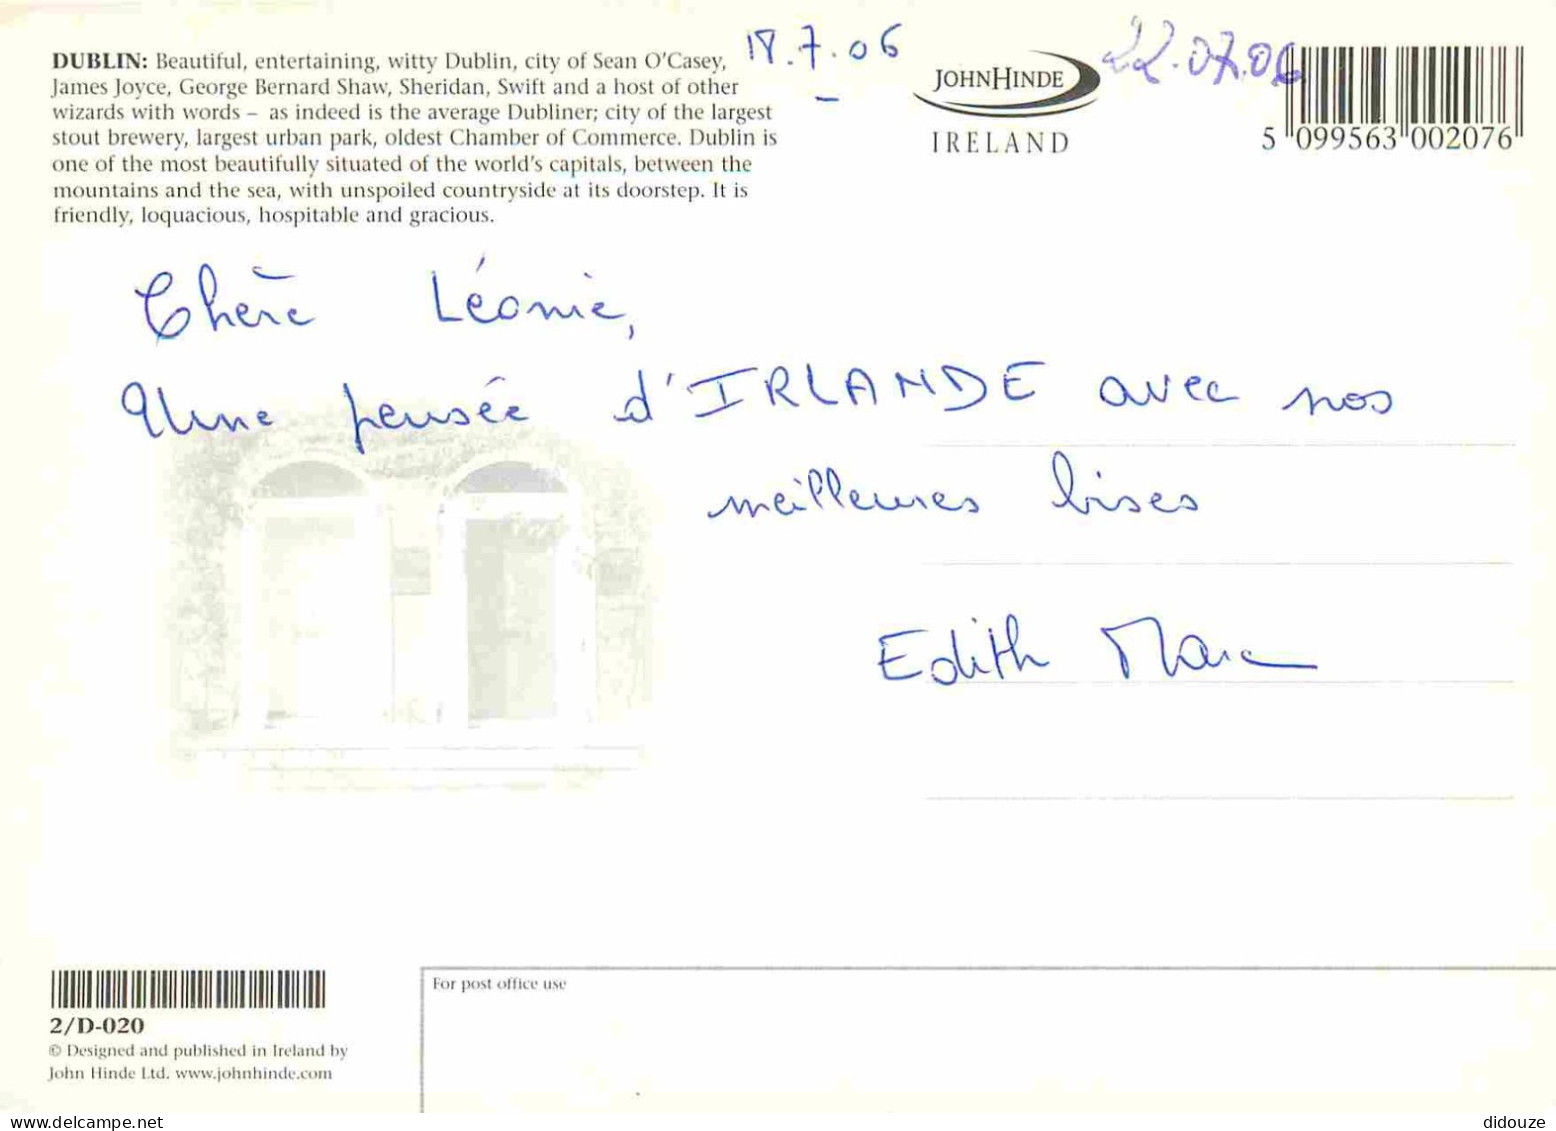 DUBLIN: Beautiful, entertaining, witty Dublin, city of Sean O'Casey,
James Joyce, George Bernard Shaw, Sheridan, Swift and a host of other
wizards with words – as indeed is the average Dubliner; city of the largest
stout brewery, largest urban park, oldest Chamber of Commerce. Dublin is
one of the most beautifully situated of the world's capitals, between the
mountains and the sea, with unspoiled countryside at its doorstep. It is
friendly, loquacious, hospitable and gracious.
18.7.06
JOHNHINDE
IRELAND
22.07.06
5 099563 002076
Chère Léonie,
Une pensée d'IRLANDE avec nos
meilleures bises
Edith Marc
2/D-020
© Designed and published in Ireland by
John Hinde Ltd. www.johnhinde.com
For post office use
delcampe.net
didouze